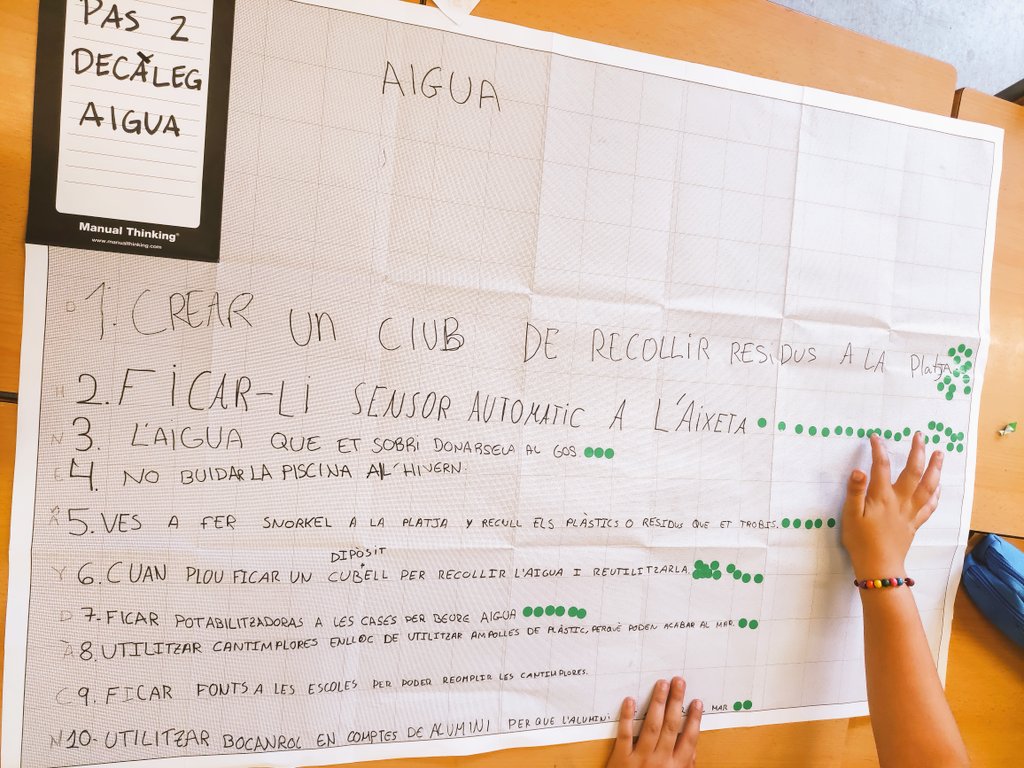 PAS 2
DECÀLEG
AIGUA
Manual Thinking®
www.manualthinking.com
AIGUA
1. CREAR UN CLUB DE RECOLLIR RESIDUS A LA PlatJA
2. FICAR-LI SENSOR AUTOMATIC A L'AIXETA
3. L'AIGUA QUE ET SOBRI DONARSELA AL GOS.
4. NO BUIDAR LA PISCINA AL'HIVERN.
5. VES A FER SNORKEL A LA PLATJA Y RECULL ELS PLÀSTICS O RESIDUS QUE ET TROBIS.
DIPÒSIT
6. CUAN PLOU FICAR UN CUBELL PER RECOLLIR L'AIGUA I REUTILITZARLA.
7. FICAR POTABILITZADORAS A LES CASES PER BEURE AIGUA
8. UTILITZAR CANTIMPLORES ENLLOC DE UTILITZAR AMPOLLES DE PLÀSTIC, PERQUÈ PODEN ACABAR AL MAR.
9. FICAR FONTS A LES ESCOLES PER PODER REOMPLIR LES CANTIMPLORES.
10. UTILITZAR BOCANROL EN COMPTES DE ALUMINI PER QUE L'ALUMINI MAR